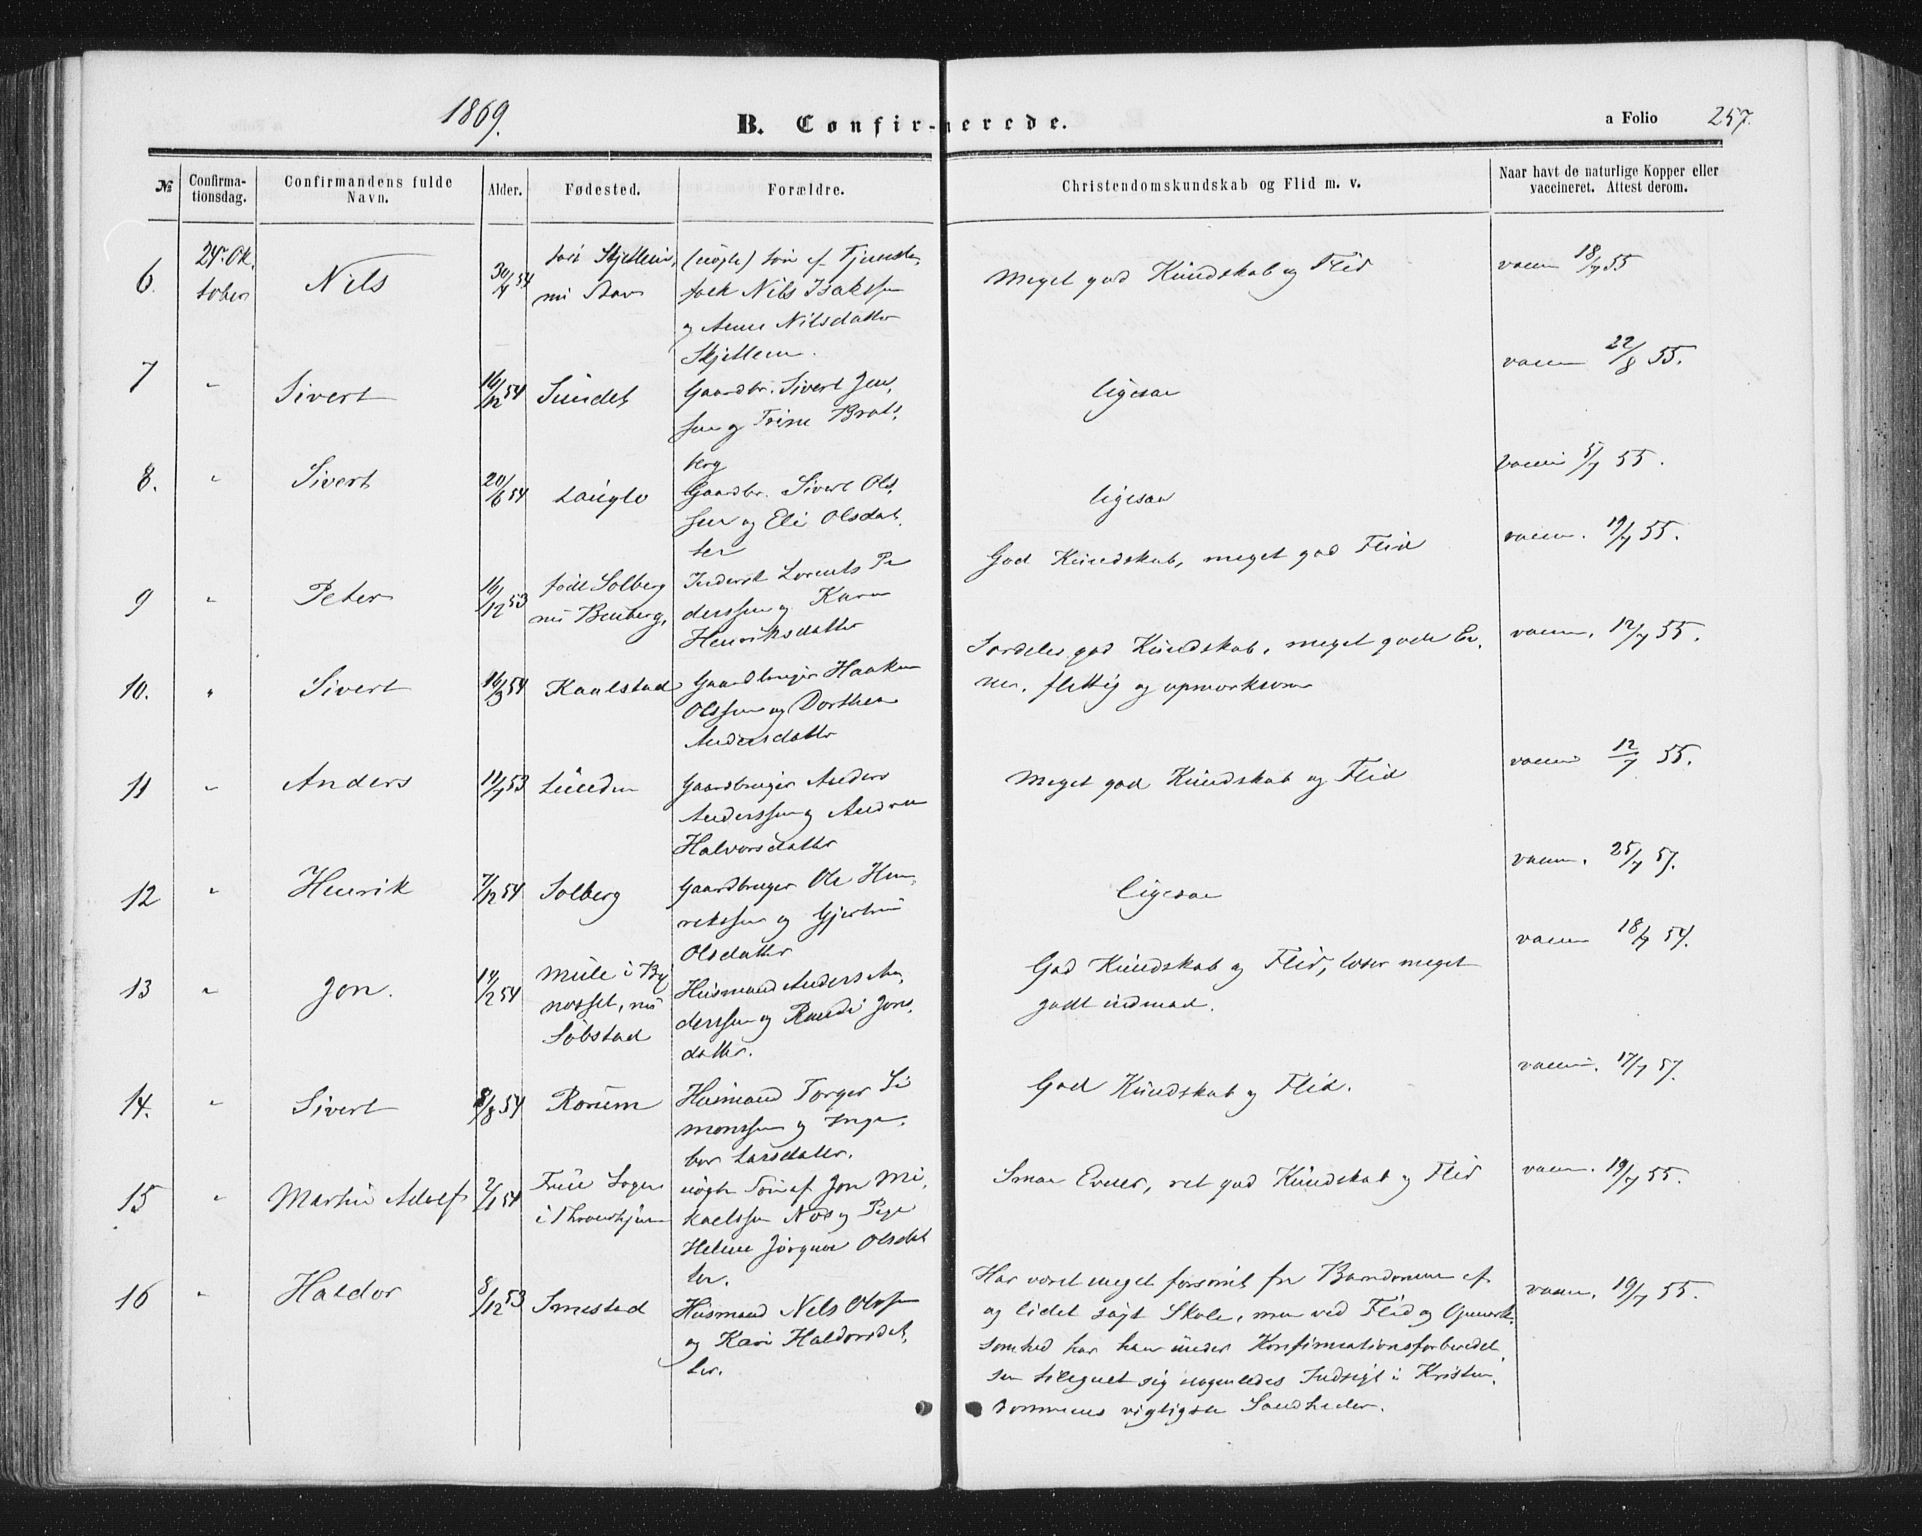 1869.
B. Confir-merede.
a Folio 257.
№
Confirma-
tionsdag.
Confirmandens fulde
Navn.
Alder.
Fødested.
Forældre.
Christendomskundskab og Flid m. v.
Naar havt de naturlige Kopper eller
vaccineret. Attest derom.
6. 24. Ok. Nils 30/4 54 født Skjetlein, (uægte) Søn af Tjeneste-
tober nu Stav folk Nils Isaksen
og Anne Nilsdatter
Skjetlein.
Meget god Kundskab og Flid vaccin 18/7 55
7 " Sivert 16/12 54 Sundet Gaardbr. Sivert Jen-
sen og Trine Brat-
berg
ligesaa vaccin 22/8 55.
8. " Sivert 20/6 54 Langlo Gaardbr. Sivert Ols-
sen og Eli Olsdat-
ter
ligesaa vaccin 5/7 55.
9 " Peter 16/12 53 født Solberg Inderst Lorents Pe
nu Benberg, derssen og Karen
Henriksdatter
God Kundskab, meget god Flid vaccin. 19/7 55.
10. " Sivert 16/3 54 Kaalstad Gaardbruger Haaken
Olssen og Dorthea
Andersdatter
Særdeles god Kundskab, meget gode Ev- vaccin. 12/7 55.
ner, flittig og opmærksom
11 " Anders 11/7 53 Lunden Gaardbruger Anders
Anderssen og Andrea
Halvorsdatter
Meget god Kundskab og Flid vaccin 12/7 55.
12 " Henrik 7/12 54 Solberg Gaardbruger Ole Hen-
rikssen og Gjertrud
Olsdatter
ligesaa vaccin. 25/7 57.
13 " Jon. 14/2 54 Mule i By Husmand Anders An-
næsset, nu derssen og Randi Jons-
Søbstad datter.
God Kundskab og Flid, læser meget vaccin 18/9 54.
godt indenad.
14. " Sivert 8/8 54 Rorum Husmand Torger Si
monssen og Inge-
bor Larsdatter.
God Kundskab og Flid. vaccin. 17/7 57.
15 " Martin Adolf 2/1 54 Frue Sogn uægte Søn af Jon Mi-
i Throndhjem kaelssen og Pige
Helene Jørgine Olsdat
ter.
Smaa Evner, ret god Kundskab og Flid vaccin. 19/7 55.
16 " Haldor 8/12 53 Smestad Husmand Nils Olssen
og Kari Haldorsdat-
ter.
Har været meget forsømt fra Barndommen af vaccin. 19/7 55.
og lidet søgt Skole, men ved Flid og Opmærk-
somhed har han under Konfirmationsforberedel-
sen tilegnet sig nogenledes Indsigt i Kristen-
dommens vigtigste Sandheder.